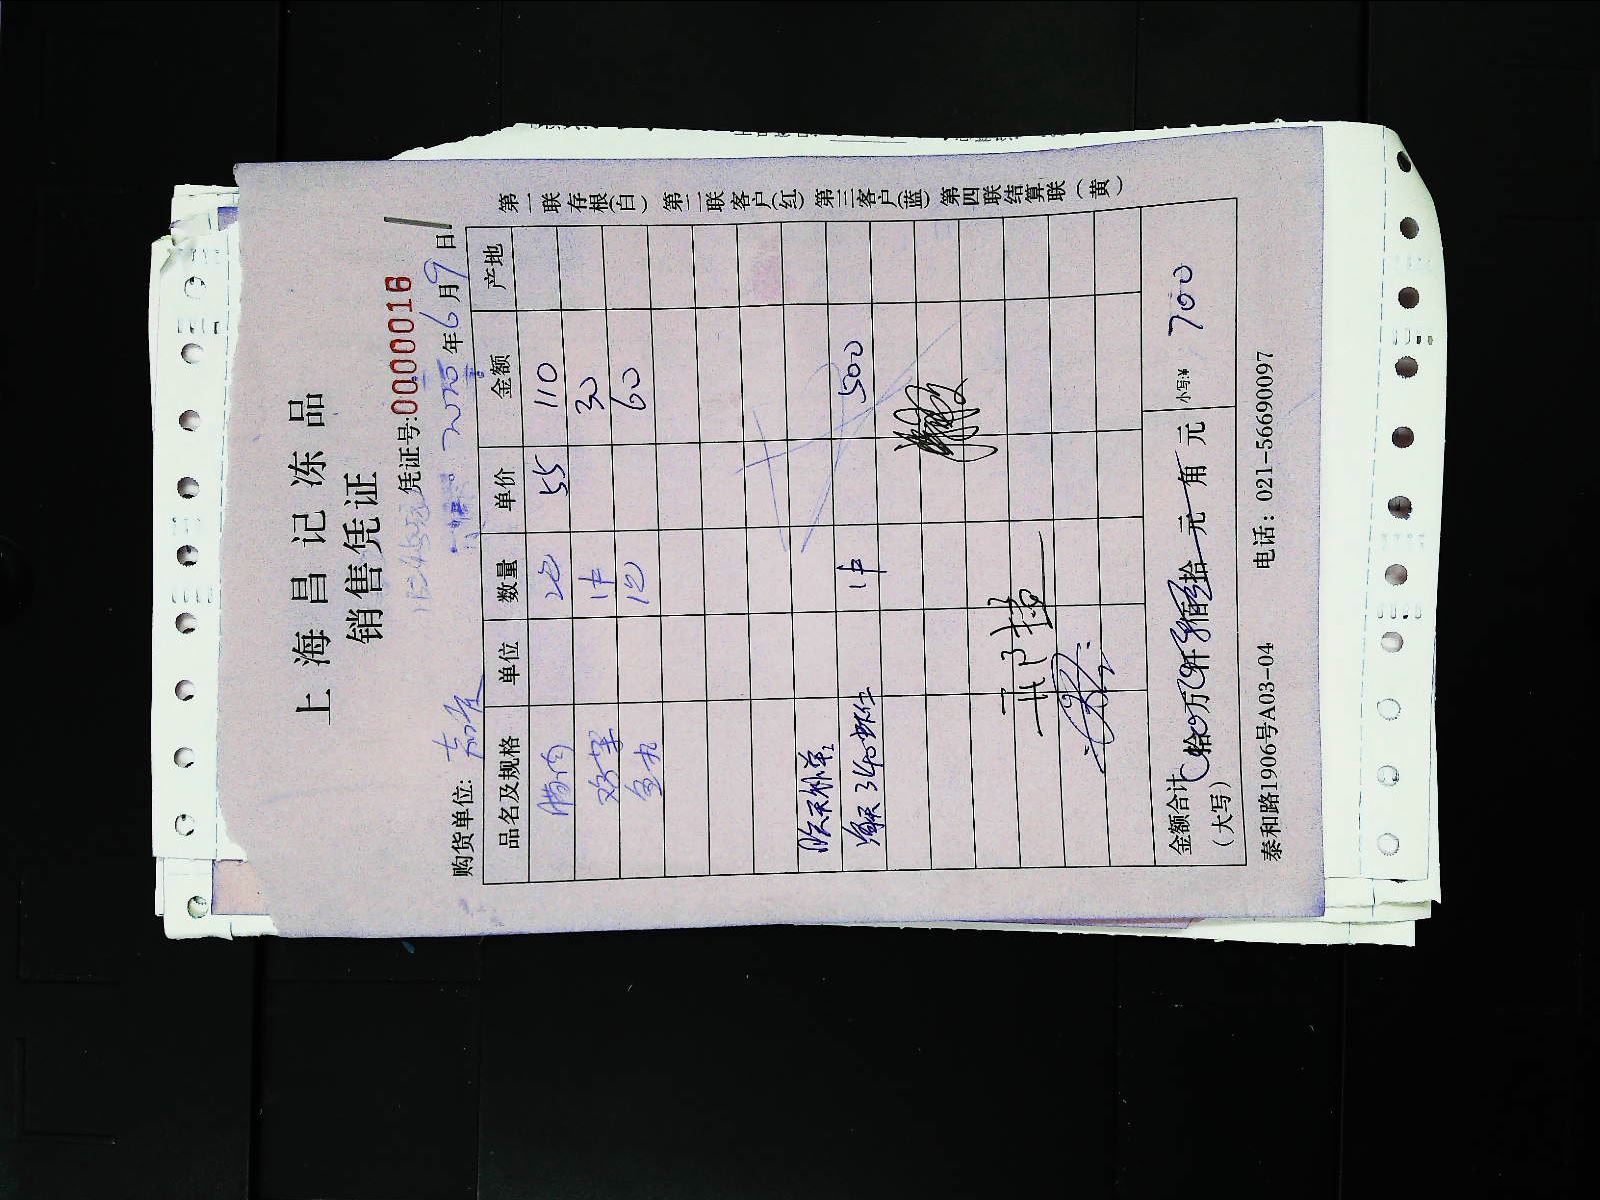 上海昌记冻品
销售凭证
凭证号:0000016
购货单位: 2025年6月9日
品名及规格 单位 数量 单价 金额 产地
腊肉 2包 55 110
1件 30
鱼丸 1包 60
昨天补单
海天340虾仁 1件 500
金额合计 拾 万 仟 佰 拾 元 角 元 小写:¥ 700
(大写)
泰和路1906号A03-04 电话: 021-56690097
第一联存根(白) 第二联客户(红) 第三客户(蓝) 第四联结算联(黄)